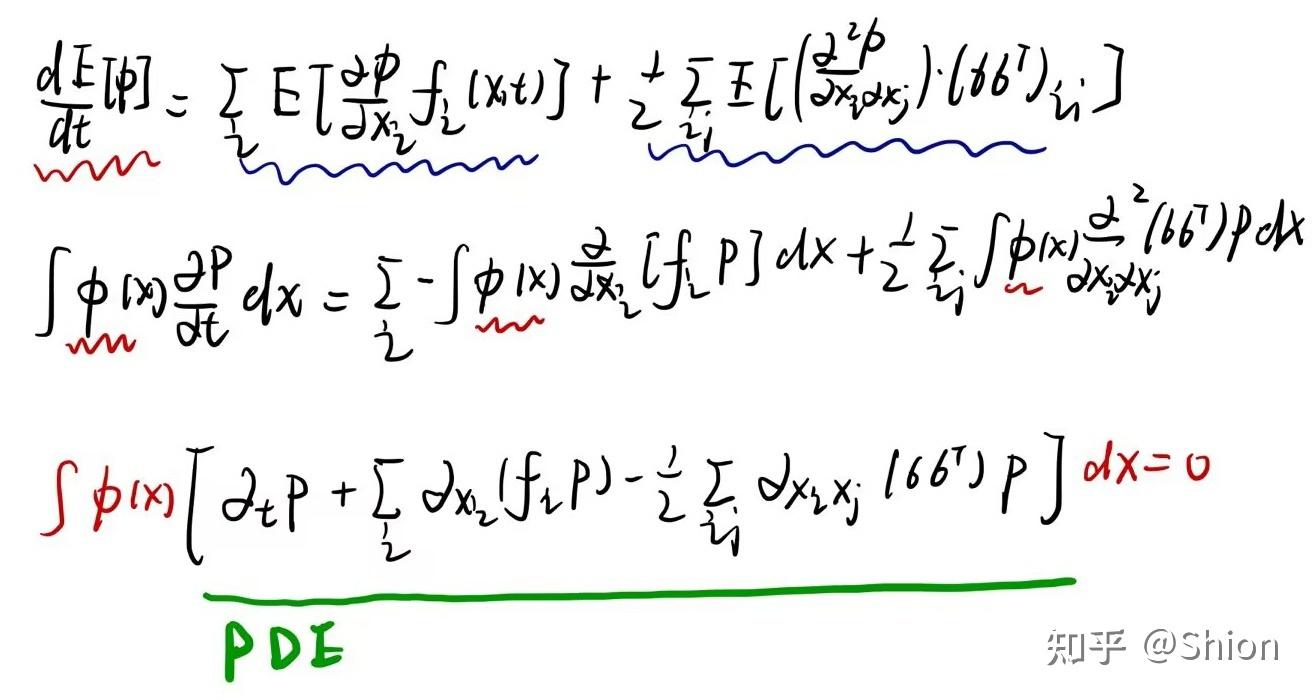 dE[φ]/dt = Σ_i E[∂φ/∂x_i f_i(x,t)] + 1/2 Σ_ij E[(∂²φ/∂x_i∂x_j)·(σσᵀ)_ij]
∫φ(x) ∂p/∂t dx = Σ_i -∫φ(x) ∂/∂x_i [f_i p] dx + 1/2 Σ_ij ∫φ(x) ∂²/∂x_i∂x_j (σσᵀ) p dx
∫φ(x)[∂_t p + Σ_i ∂x_i (f_i p) - 1/2 Σ_ij ∂x_i x_j (σσᵀ) p] dx = 0
PDE
知乎 @Shion